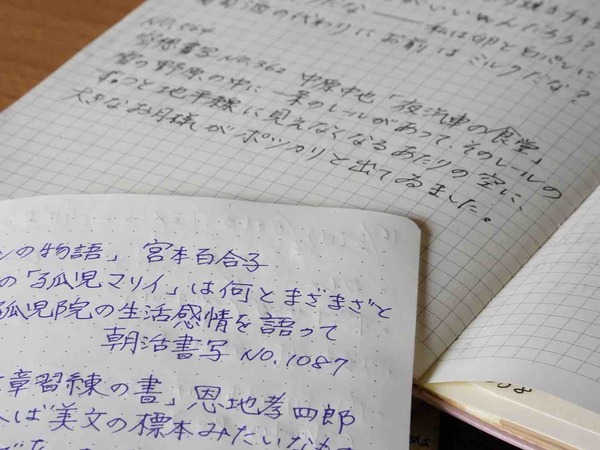 葡萄酒の代わりにお前はミルクだな?
空想書写 No.362 中原中也「夜汽車の食堂」
雪の野原の中に一条のレールがあって、そのレールの
ずっと地平線に見えなくなるあたりの空に、
大きなお月様がポツカリと出てゐました。
ンの物語」 宮本百合子
の「孤児マリイ」は何とまざまざと
孤児院の生活感情を語って
朝活書写 NO.1087
章習練の書」恩地孝四郎
へば美文の標本みたいなもの